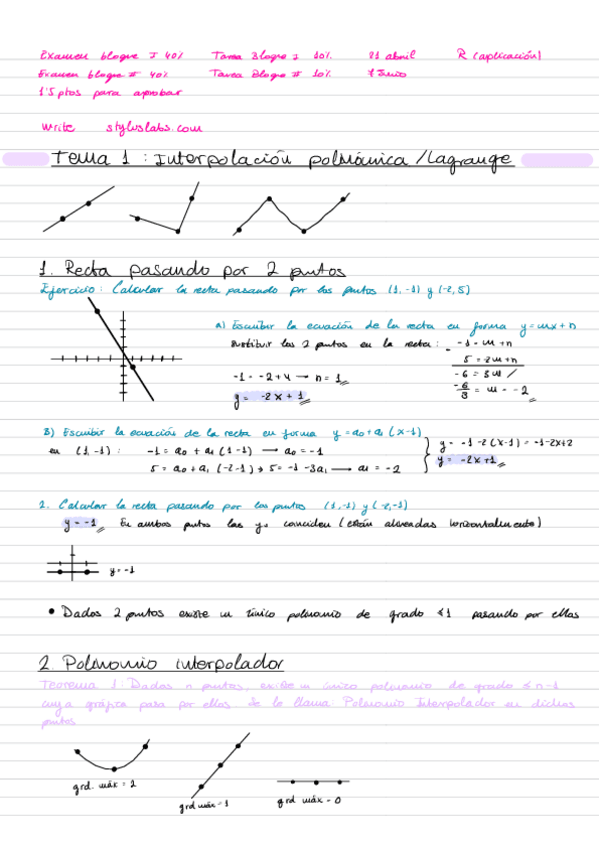 Examen bloque I 40% Tarea Bloque I 10% 21 abril R (aplicación)
Examen bloque II 40% Tarea Bloque II 10% 1 Junio
1'5 ptos para aprobar
Write styluslabs.com
Tema 1 : Interpolación polinómica / Lagrange
1. Recta pasando por 2 puntos
Ejercicio : Calcular la recta pasando por los puntos (1,-1) y (-2,5)
a) Escribir la ecuación de la recta en forma y=mx+n
sustituir los 2 puntos en la recta : -1 = m+n
5 = -2m+n
-6 = 3m
-1 = -2+n → n = 1
-6/3 = m = -2
y = -2x+1
B) Escribir la ecuación de la recta en forma y = a0 + a1 (x-1)
en (1,-1) : -1 = a0 + a1 (1-1) → a0 = -1
y = -1-2(x-1) = -1-2x+2
5 = a0 + a1 (-2-1) → 5 = -1 -3a1 → a1 = -2
y = -2x+1
2. Calcular la recta pasando por los puntos (1,-1) y (-2,-1)
y = -1 En ambos puntos las y0 coinciden (están alineadas horizontalmente)
y = -1
• Dados 2 puntos existe un único polinomio de grado ≤1 pasando por ellos
2. Polinomio interpolador
Teorema 1: Dados n puntos, existe un único polinomio de grado ≤ n-1
cuya gráfica pasa por ellos. Se le llama Polinomio Interpolador en dichos
puntos
grd. máx = 2
grd máx = 1
grd máx = 0